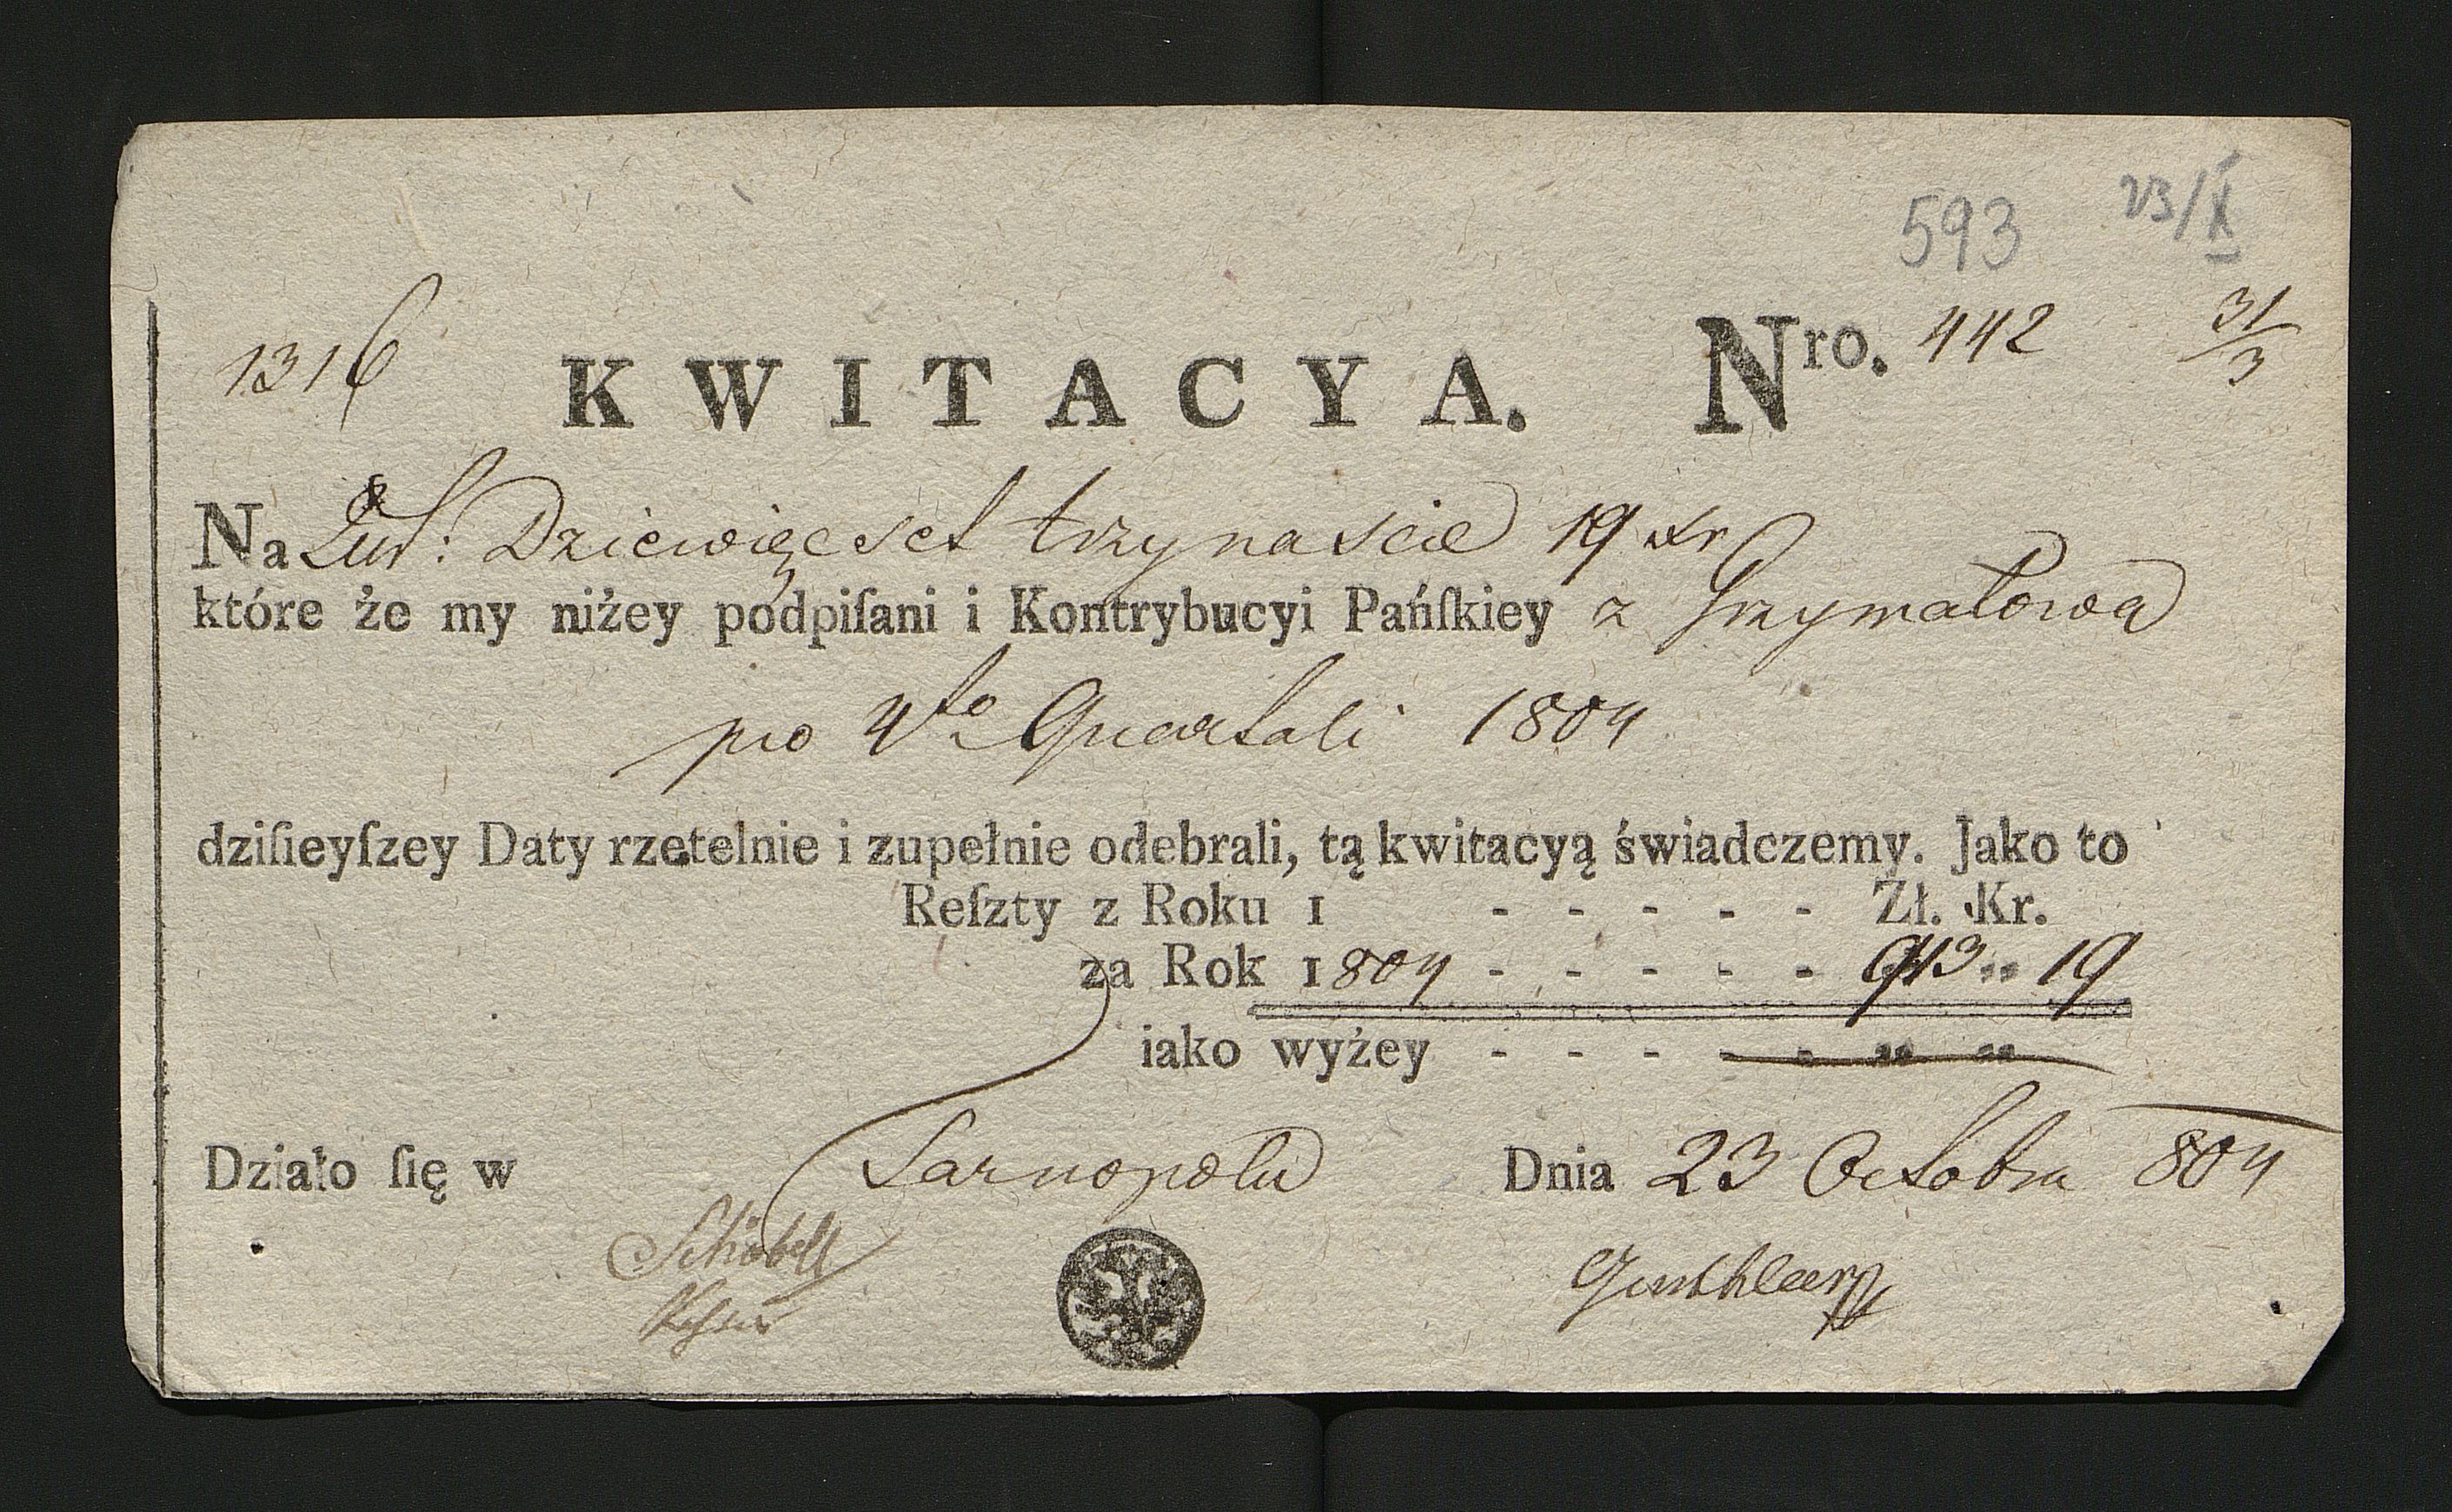 593 23/X
1316 KWITACYA. Nro. 442 31/3
Na Dziewięcset trzynaście 19 xr
które że my niżey podpiſani i Kontrybucyi Pańſkiey z Grzymałowa
pro 4to Quartali 1804
dziſieyſzey Daty rzetelnie i zupełnie odebrali, tą kwitacyą świadczemy. Jako to
Reſzty z Roku 1 - - - - - Zł. Kr.
za Rok 1804 - - - - - 913 .. 19
iako wyżey - - - - - .. ..
Działo ſię w Tarnopolu Dnia 23 Octobra 804
Schöbell